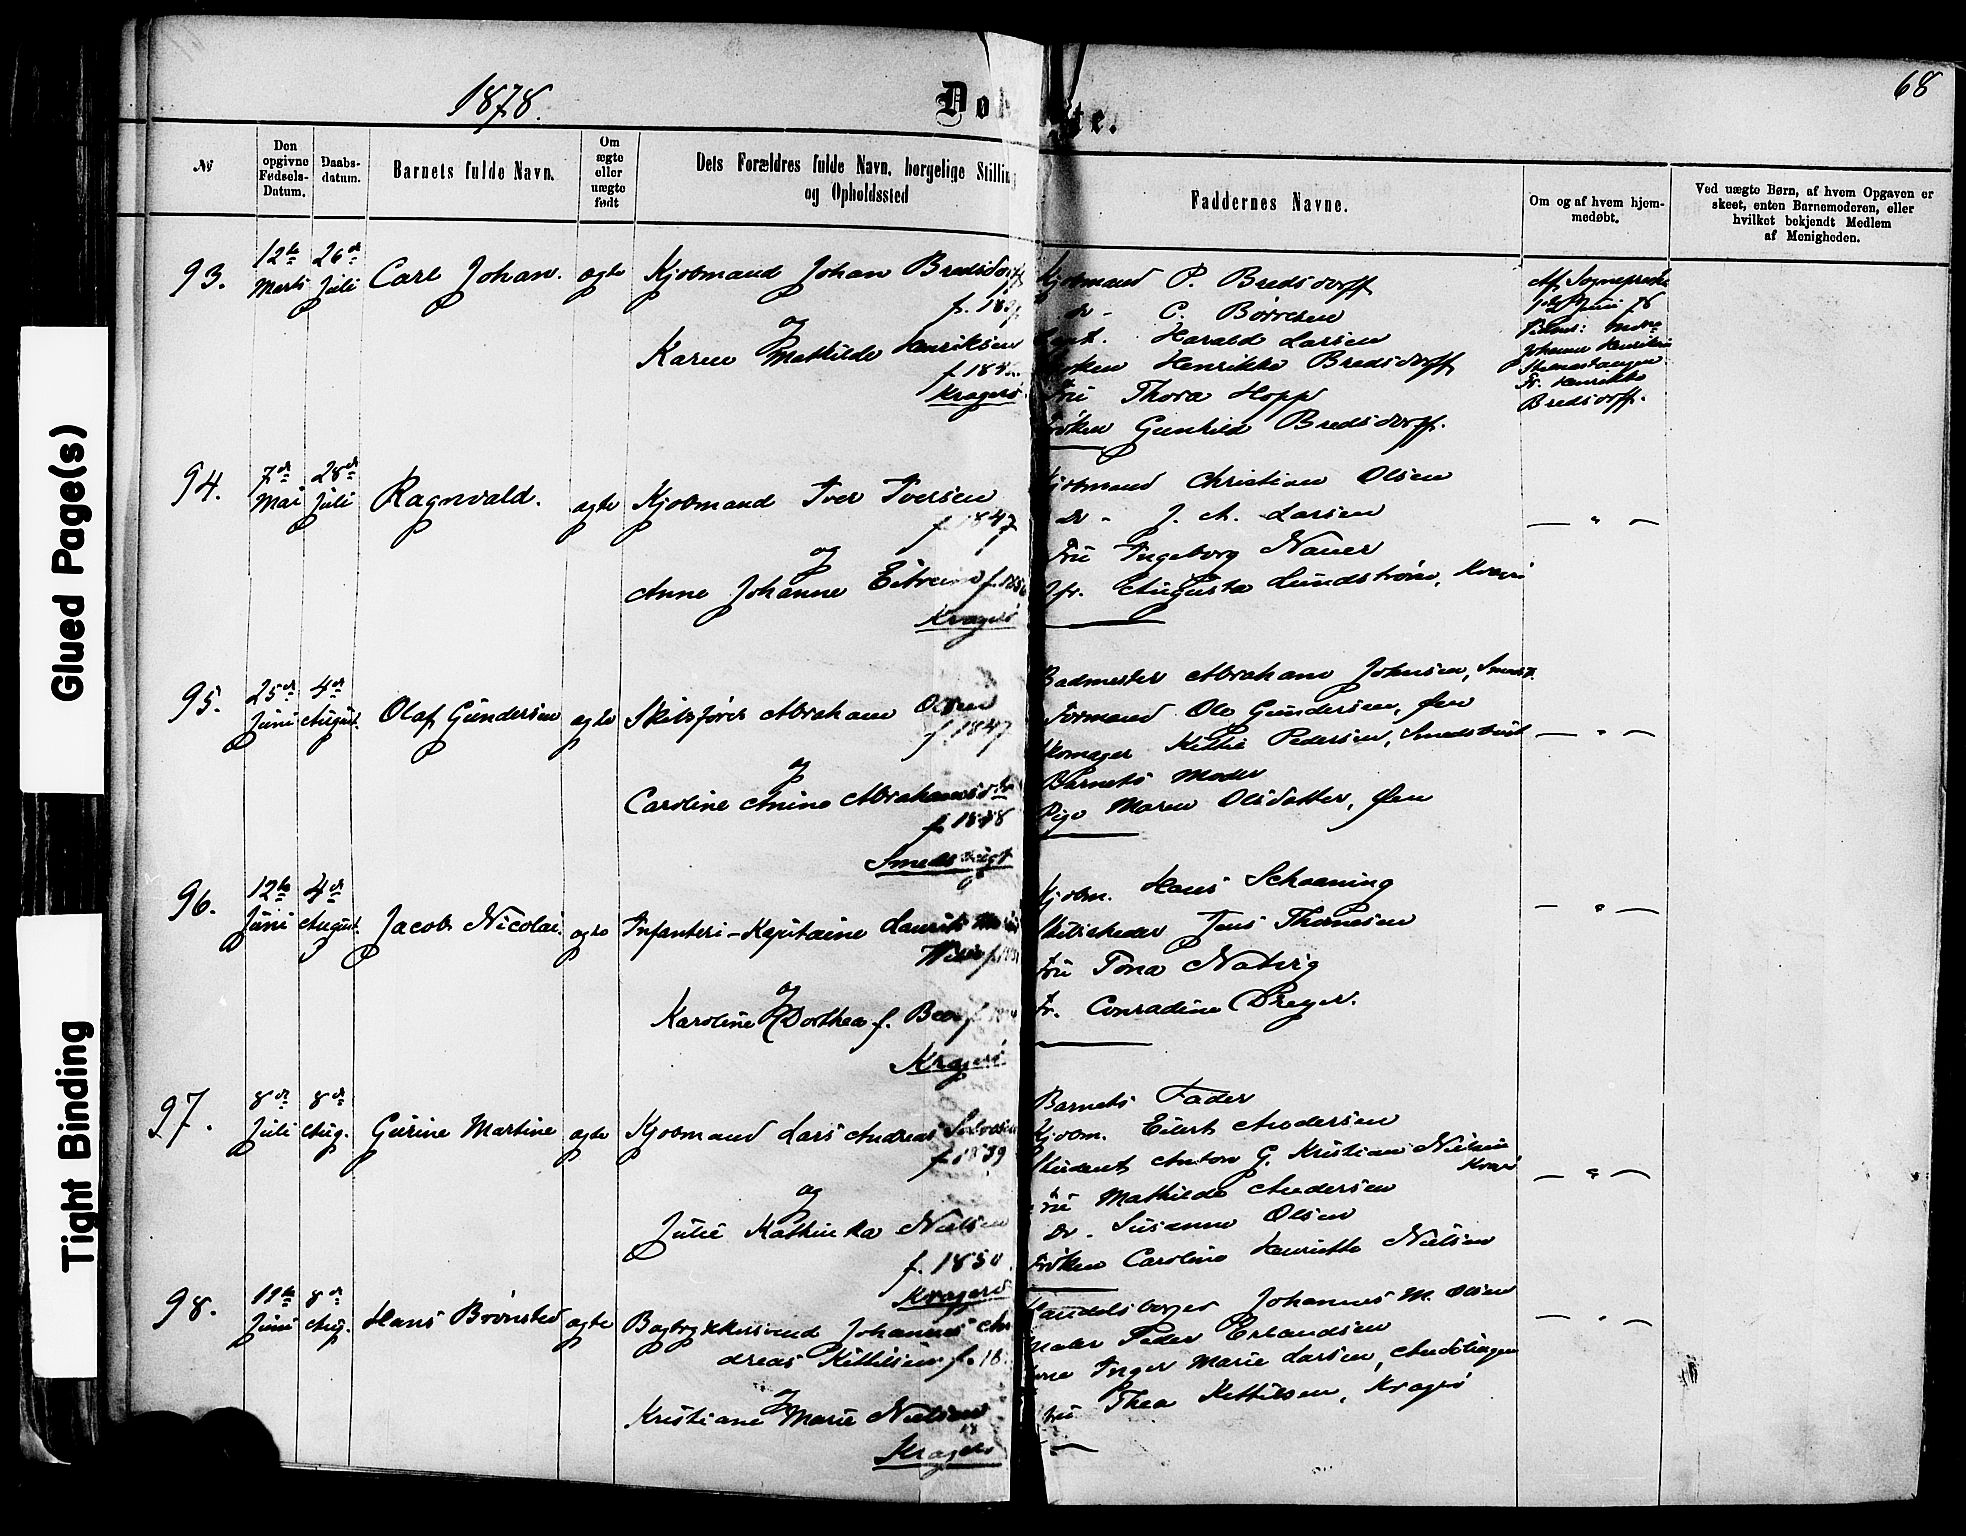 1878.
68
Døbte.
№
Den opgivne Fødsels-Datum.
Daabs-datum.
Barnets fulde Navn.
Om ægte eller uægte født
Dets Forældres fulde Navn, borgelige Stilling og Opholdssted
Faddernes Navne.
Om og af hvem hjem-medøbt.
Ved uægte Børn, af hvem Opgaven er skeet, enten Barnemoderen, eller hvilket bekjendt Medlem af Menigheden.
93.
12te Marts
26de Juli
Carl Johan.
ægte
Kjøbmand Johan Bredsdorff
og
Karen Mathilde Henriksen
Kragerø
Kjøbmand P. Bredsdorff
do - C. Børresen
Harald Larsen
Frøken Henrikke Bredsdorff
Fru Thora Hopp
Frøken Gunhild Bredsdorff.
Af Sognepræst
Johanne Henriksen
Fr. Henrikke
Bredsdorff.
94.
7de Mai
28de Juli
Ragnvald.
ægte
Kjøbmand Iver Iversen
f. 1847
og
Anne Johanne Eitrein
Kragerø
Kjøbmand Christian Olsen
do - J. A. Larsen
Fru Ingeborg Nauer
Jfr. Augusta Lundstrøm, Kragø
— " —
95.
25de Juni
4de August.
Olaf Gundersen
ægte
Skibsfører Abraham Olsen
f. 1847
og
Caroline Anine Abrahamsdtr
f. 1848
Smedsbugt
Badmester Abraham Johnsen, Smedsb.
Formand Ole Gundersen, Øen
Skomager Kittil Pedersen, Smedsbugt
Barnets Moder
Pige Maren Olsdatter, Øen
— " —
96.
12te Juni
4de August.
Jacob Nicolai.
ægte
Infanteri-Kapitaine Laurits
og
Karoline Dorthea f. Beer
Kragerø
Kjøbm. Hans Schaaning
Skibsreder Jens Thomesen
Fru Tona Natvig
Fr. Conradine Dreyer.
— " —
97.
8de Juli
8de Aug.
Gurine Martine
ægte
Kjøbmand Lars Andreas
f. 1839
og
Julie Kathinka Nielsen
f. 1850.
Kragerø
Barnets Fader
Kjøbm. Eilert Andersen
Student Anton G. Kristian Nielsen
Kragø
Fru Mathilde Andersen
do - Susanne Olsen
Frøken Caroline Henriette Nielsen
— " —
98.
11te Juni
8de Aug.
Hans Brønsted
ægte
Bogtrykkersvend Johannes An
dreas Kittilsen
og
Kristiane Marie Nielsen
Kragerø
Handelsborger Johannes M. Olsen
Maler Peder Erlandsen
Inger Marie Larsen,
Fru Thea Kittilsen, Kragø
— " —
Glued Page(s)
Tight Binding